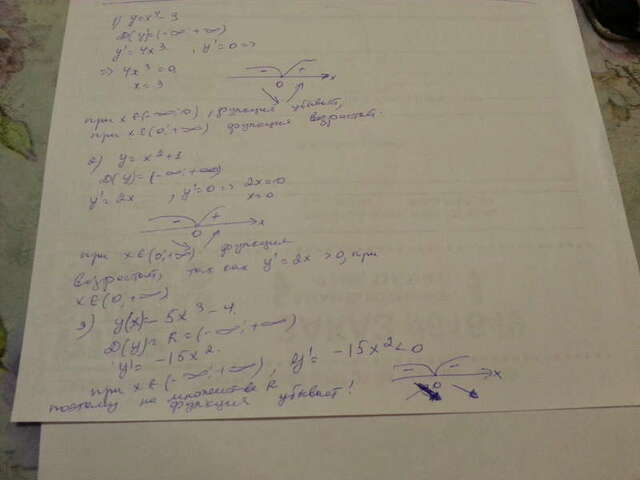 1) y=x⁴-3
D(y)=(-∞;+∞)
y'=4x³, y'=0 =>
=> 4x³=0
x=3
- + x
0
при x∈(-∞;0), функция убывает,
при x∈(0;+∞) функция возрастает.
2) y=x²+1
D(y)=(-∞;+∞)
y'=2x, y'=0 => 2x=0
x=0
- + x
0
при x∈(0;+∞) функция
возрастает, так как y'=2x>0, при
x∈(0;+∞)
3) y(x)=-5x³-4.
D(y)=R=(-∞;+∞)
y'=-15x².
при x∈(-∞;+∞), y'=-15x²<0
- - x
0
поэтому на множестве R
функция убывает!